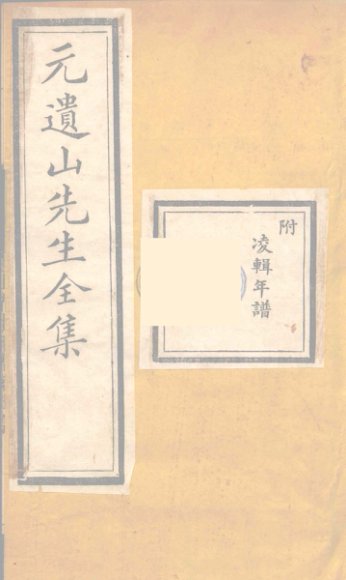 元遺山先生全集
附
凌輯年譜